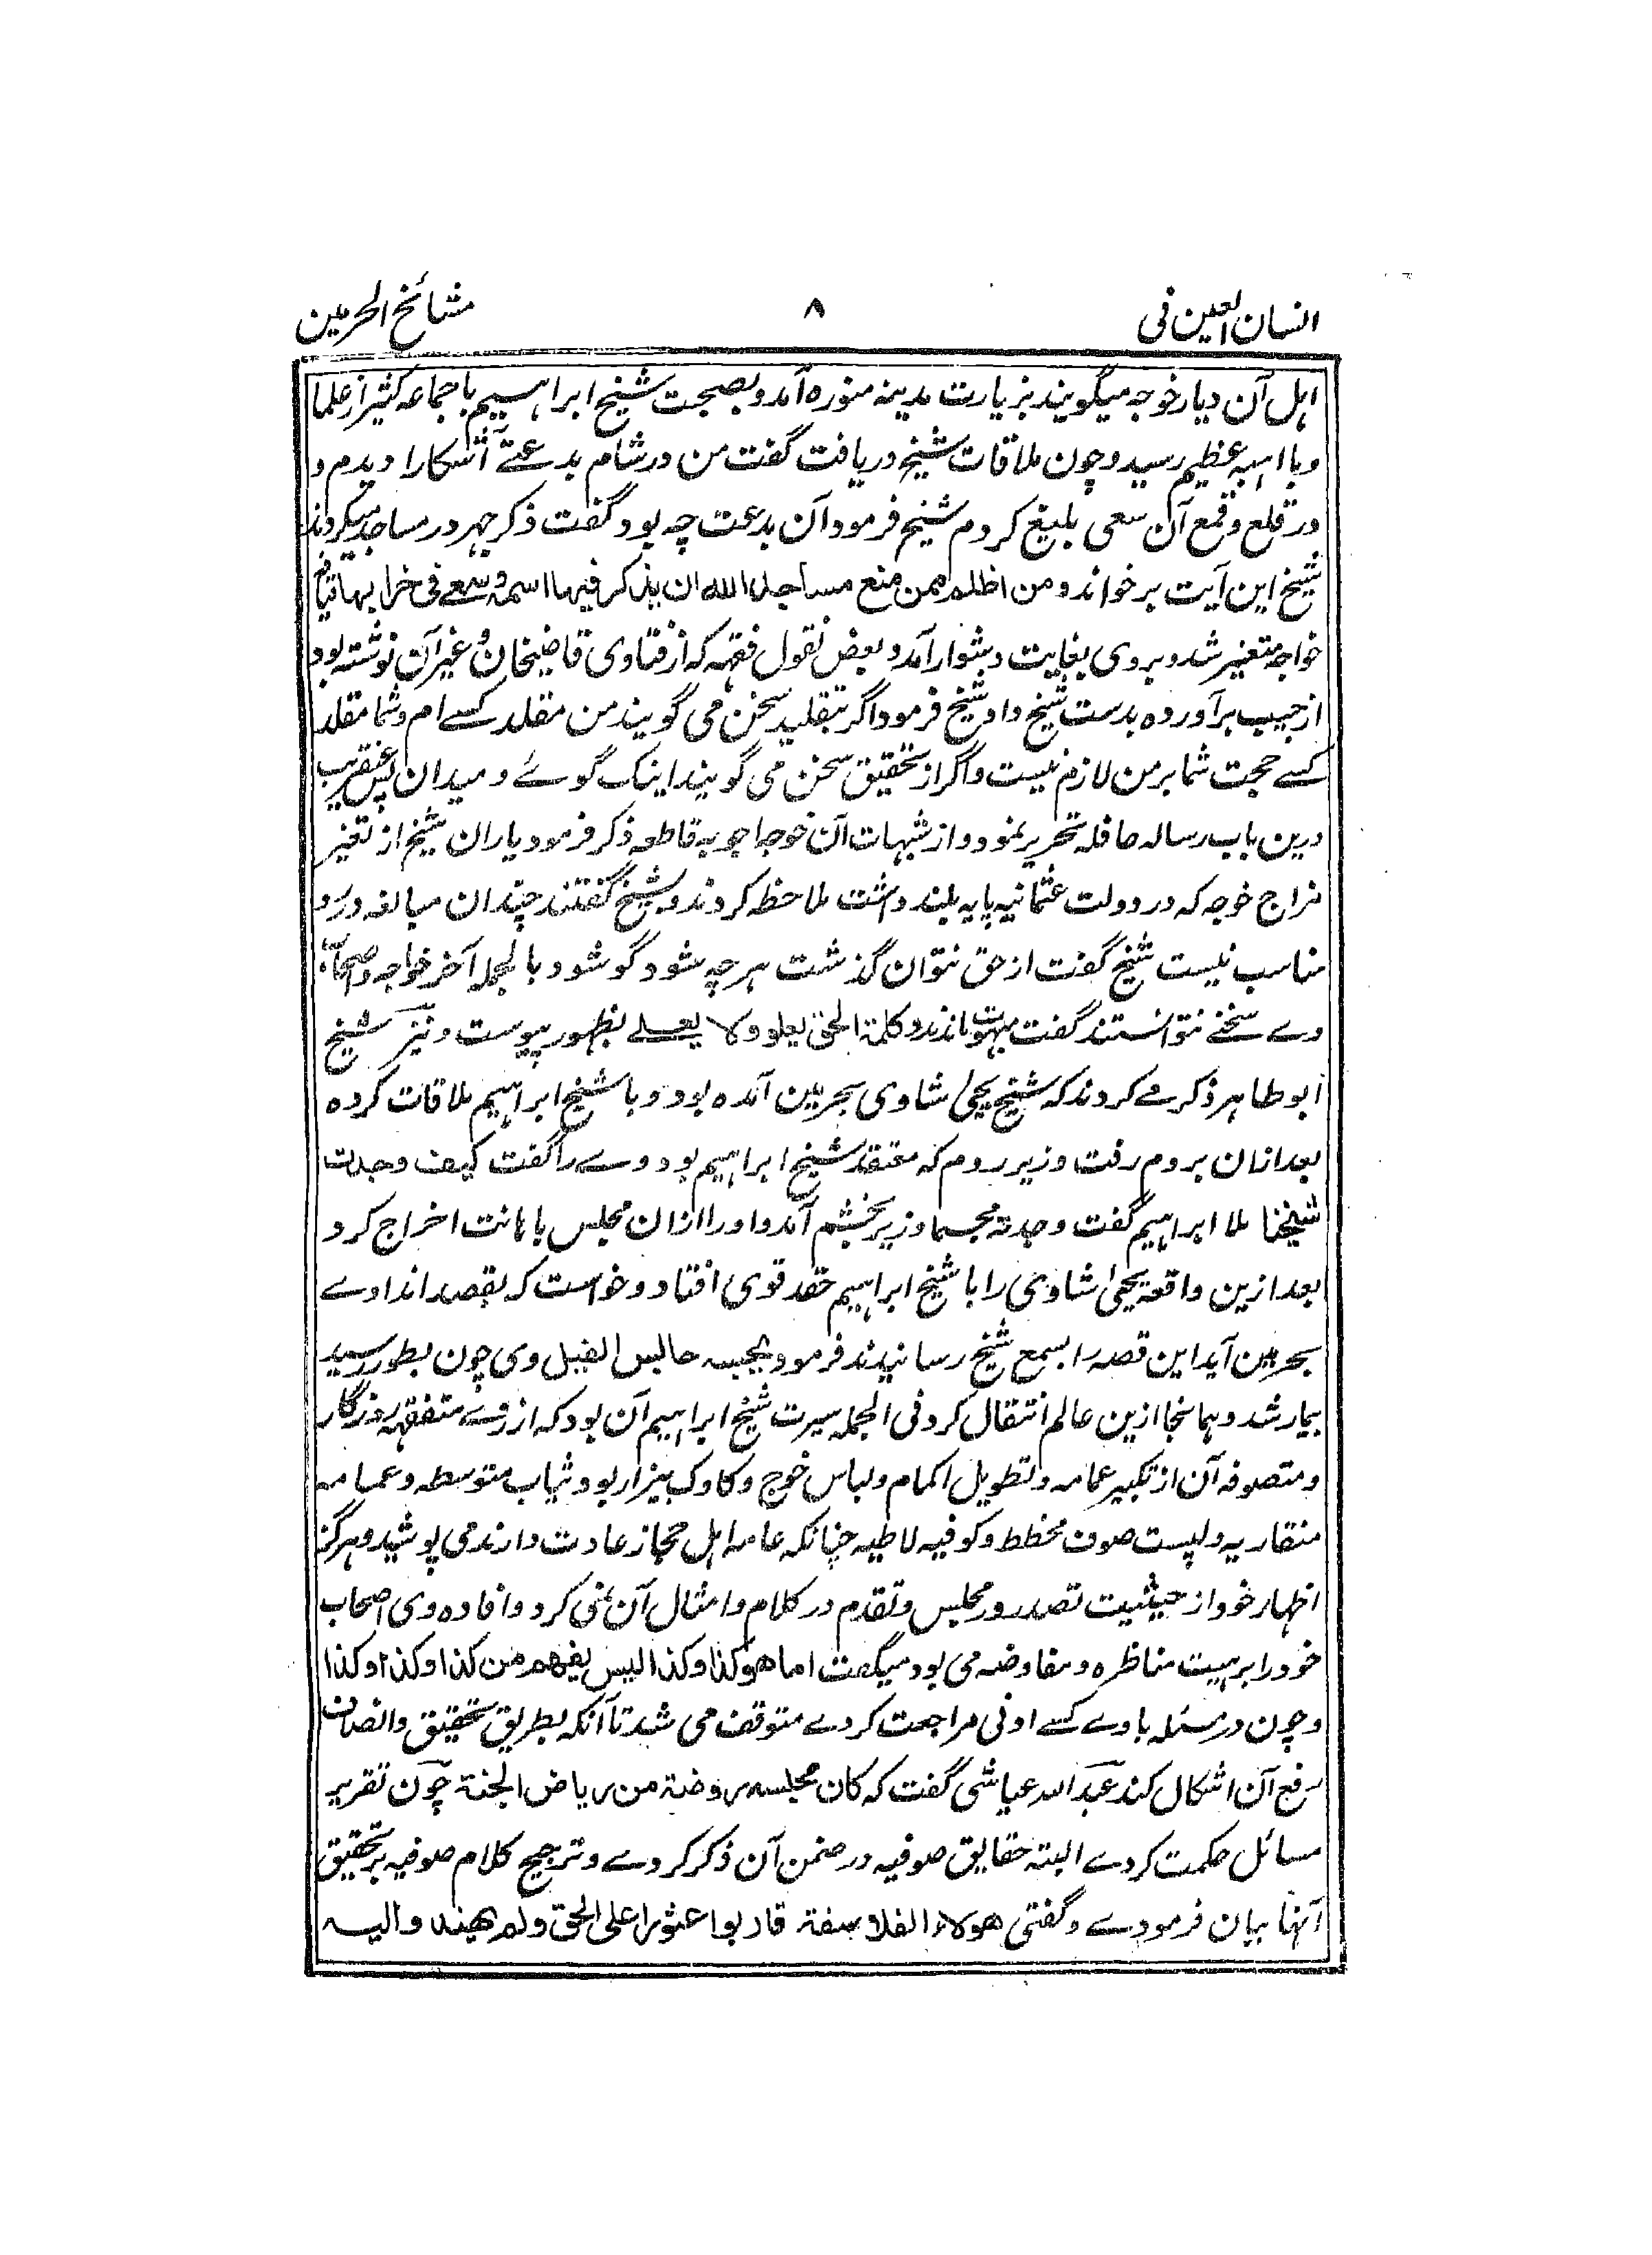 انسان العین فی ۸ مشائخ الحرمین
اہل آن دیار خوجہ میگویند بزیارت مدینہ منورہ آمد و بصحبت شیخ ابراہیم با جماعہ کثیر از علما
و با اہبہ عظیم رسید و چون ملاقات شیخ دریافت گفت من در شام بدعتے آشکارا دیدم و
در قلع و قمع آن سعی بلیغ کردم شیخ فرمود آن بدعت چہ بود گفت ذکر جہر در مساجد میکردند
شیخ این آیت بر خواند و من اظلم ممن منع مساجد الله ان یذکر فیہا اسمہ و سعے فی خرابہا قیافہ
خواجہ متغیر شد و بروی بغایت دشوار آمد و بعض نقول فقہہ کہ از فتاوی قاضیخان و غیر آن نوشتہ بود
از جیب برآوردہ بدست شیخ داد شیخ فرمود اگر بتقلید سخن می گویند من مقلد کسے ام و شما مقلد
کسے حجت شما بر من لازم نیست و اگر از تحقیق سخن می گویند اینک گوئے و میدان پس عنقریب
درین باب رسالہ حافلہ تحریر نمود و از شبہات آن خوجہ اجوبہ قاطعہ ذکر فرمود یاران شیخ از تغیر
مزاج خوجہ کہ در دولت عثمانیہ پایہ بلند داشت ملاحظہ کردند و بشیخ گفتند چندان مبالغہ در رد
مناسب نیست شیخ گفت از حق نتوان گذشت ہر چہ شود گو شود بالجملہ آخر خواجہ و اصحاب
وے سخنے نتوانستند گفت مبہوت ماندند و کلمۃ الحق یعلو و لا یعلے بظہور پیوست و نیز شیخ
ابو طاہر ذکر مے کردند کہ شیخ یحیی شاوی بحرمین آمدہ بود و با شیخ ابراہیم ملاقات کردہ
بعد ازان بروم رفت وزیر روم کہ معتقد شیخ ابراہیم بود وے را گفت کیف وجدت
شیخنا ملا ابراہیم گفت وجدتہ مجسما وزیر بخشم آمد و او را ازان مجلس باہانت اخراج کرد
بعد ازین واقعہ یحییٰ شاوی را با شیخ ابراہیم حقد قوی افتاد و خواست کہ بقصد ایذاء وے
بحرمین آید این قصہ را بسمع شیخ رسانیدند فرمود یحبسہ حابس الفیل وی چون بطور رسید
بیمار شد و ہمانجا ازین عالم انتقال کرد فی الجملہ سیرت شیخ ابراہیم آن بود کہ از روئے متفقہہ روزگار
و متصوفہ آن از تکبیر عمامہ و تطویل اکمام و لباس خوج و کاوک بیزار بود و ثیاب متوسطہ و عمامہ
متقاربہ و لپست صوف مخطط و کوفیہ لاطیہ چنانکہ عامہ اہل حجاز عادت دارند می پوشید و ہرگز
اظہار خود از حیثیت تصدر در مجلس و تقدم در کلام و امثال آن نمی کرد و افادہ وی اصحاب
خود را بر ہیئت مناظرہ و مفاوضہ می بود میگفت اما ہو کذا و کذا الیس یفہم من کذا و کذا و کذا
و چون در مسئلہ با وے کسے ادنی مراجعت کردے متوقف می شد تا آنکہ بطریق تحقیق و انصاف
رفع آن اشکال کند عبد اللہ عیاشی گفت کہ کان مجلسہ روضۃ من ریاض الجنۃ چون تقریر
مسائل حکمت کردے البتہ حقایق صوفیہ در ضمن آن ذکر کردے و ترجیح کلام صوفیہ بر تحقیق
آنہا بیان فرمودے و گفتی ہولاء الفلاسفۃ قاربوا عثورا علی الحق و لم یہتدوا الیہ